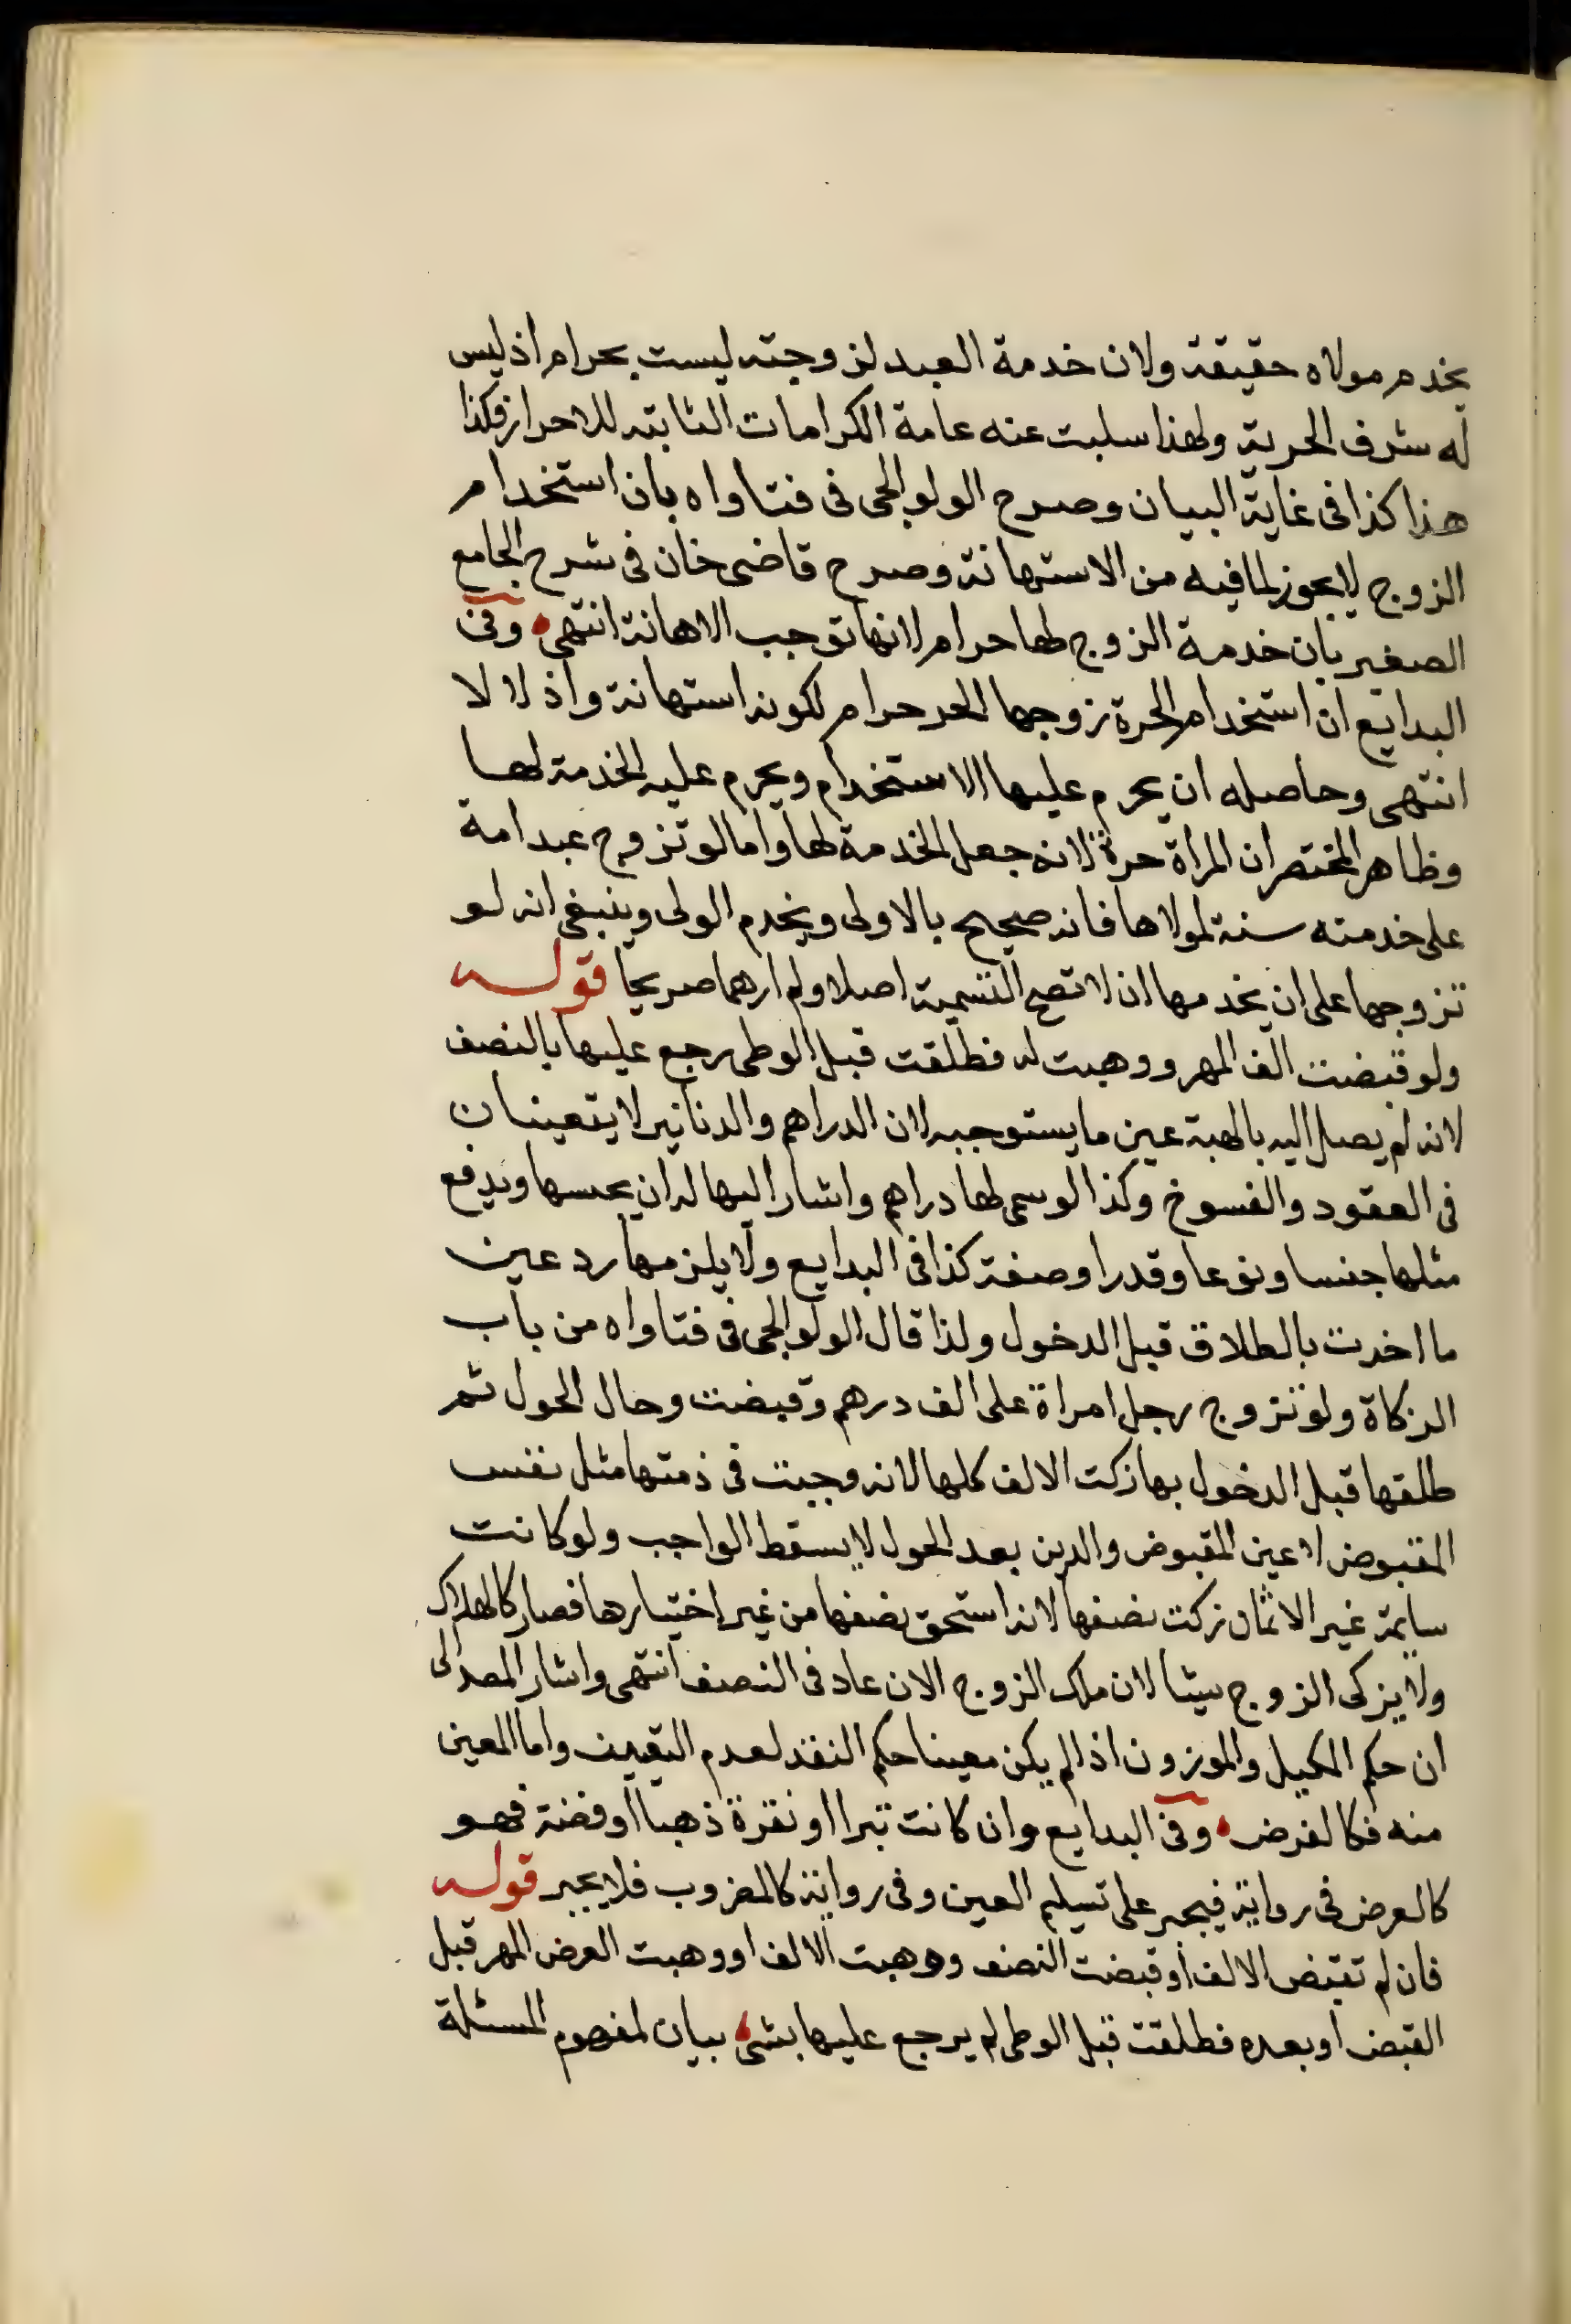 يخدم مولاه حقيقة ولان خدمة العبد لزوجته ليست بحرام اذ ليس
له شرف الحرية ولهذا سلبت عنه عامة الكرامات الثابته للاحرار فكذا
هذا كذا فى غاية البيان وصرح الولوالجى فى فتاواه بان استخدام
الزوج لا يجوز لما فيه من الاستهانة وصرح قاضى خان فى شرح الجامع
الصغير بان خدمة الزوج لها حرام لانها توجب الاهانة انتهى وفى
البدايع ان استخدام الحرة زوجها الحر حرام لكونه استهانة واذلالا
انتهى وحاصله ان يحرم عليها الاستخدام ويحرم عليه الخدمة لها
وظاهر المختصر ان المراة حرة لانه جعل الخدمة لها واما لو تزوج عبد امة
على خدمته سنة لمولاها فانه صحيح بالاولى ويخدم الولى وينبغى انه لو
تزوجها على ان يخدمها ان لا تصح التسمية اصلا ولم ارهما صريحا قوله
ولو قبضت الف المهر ووهبت له فطلقت قبل الوطى رجع عليها بالنصف
لانه لم يصل اليه بالهبة عين ما يستوجبه لان الدراهم والدنانير لا يتعينان
فى العقود والفسوخ وكذا لو سمى لها دراهم واشار اليها له ان يحبسها ويدفع
مثلها جنسا ونوعا وقدرا وصفة كذا فى البدايع ولا يلزمها رد عين
ما اخدت بالطلاق قبل الدخول ولذا قال الولوالجى فى فتاواه من باب
الزكاة ولو تزوج رجل امراة على الف درهم وقبضت وحال الحول ثم
طلقها قبل الدخول بها زكت الالف كلها لانه وجبت فى ذمتها مثل نفس
المقبوض لا عين المقبوض والدين بعد الحول لا يسقط الواجب ولو كانت
سايمة غير الاثمان زكت نصفها لانه استحق نصفها من غير اختيارها فصار كالهلاك
ولا يزكى الزوج شيئا لان ملك الزوج الان عاد فى النصف انتهى واشار المصالى
ان حكم المكيل والموزون اذا لم يكن معينا حكم النقد لعدم التعيين واما المعين
منه فكالفرض وفى البدايع وان كانت تبرا او نقرة ذهبا او فضة فهو
كالعرض فى رواية فيجبر على تسليم العين وفى رواية كالمضروب فلا يجبر قوله
فان لم تقبض الالف او قبضت النصف ووهبت الالف او وهبت العرض المهر قبل
القبض او بعده فطلقت قبل الوطى لم يرجع عليها بشى بيان لمفهوم المسئلة